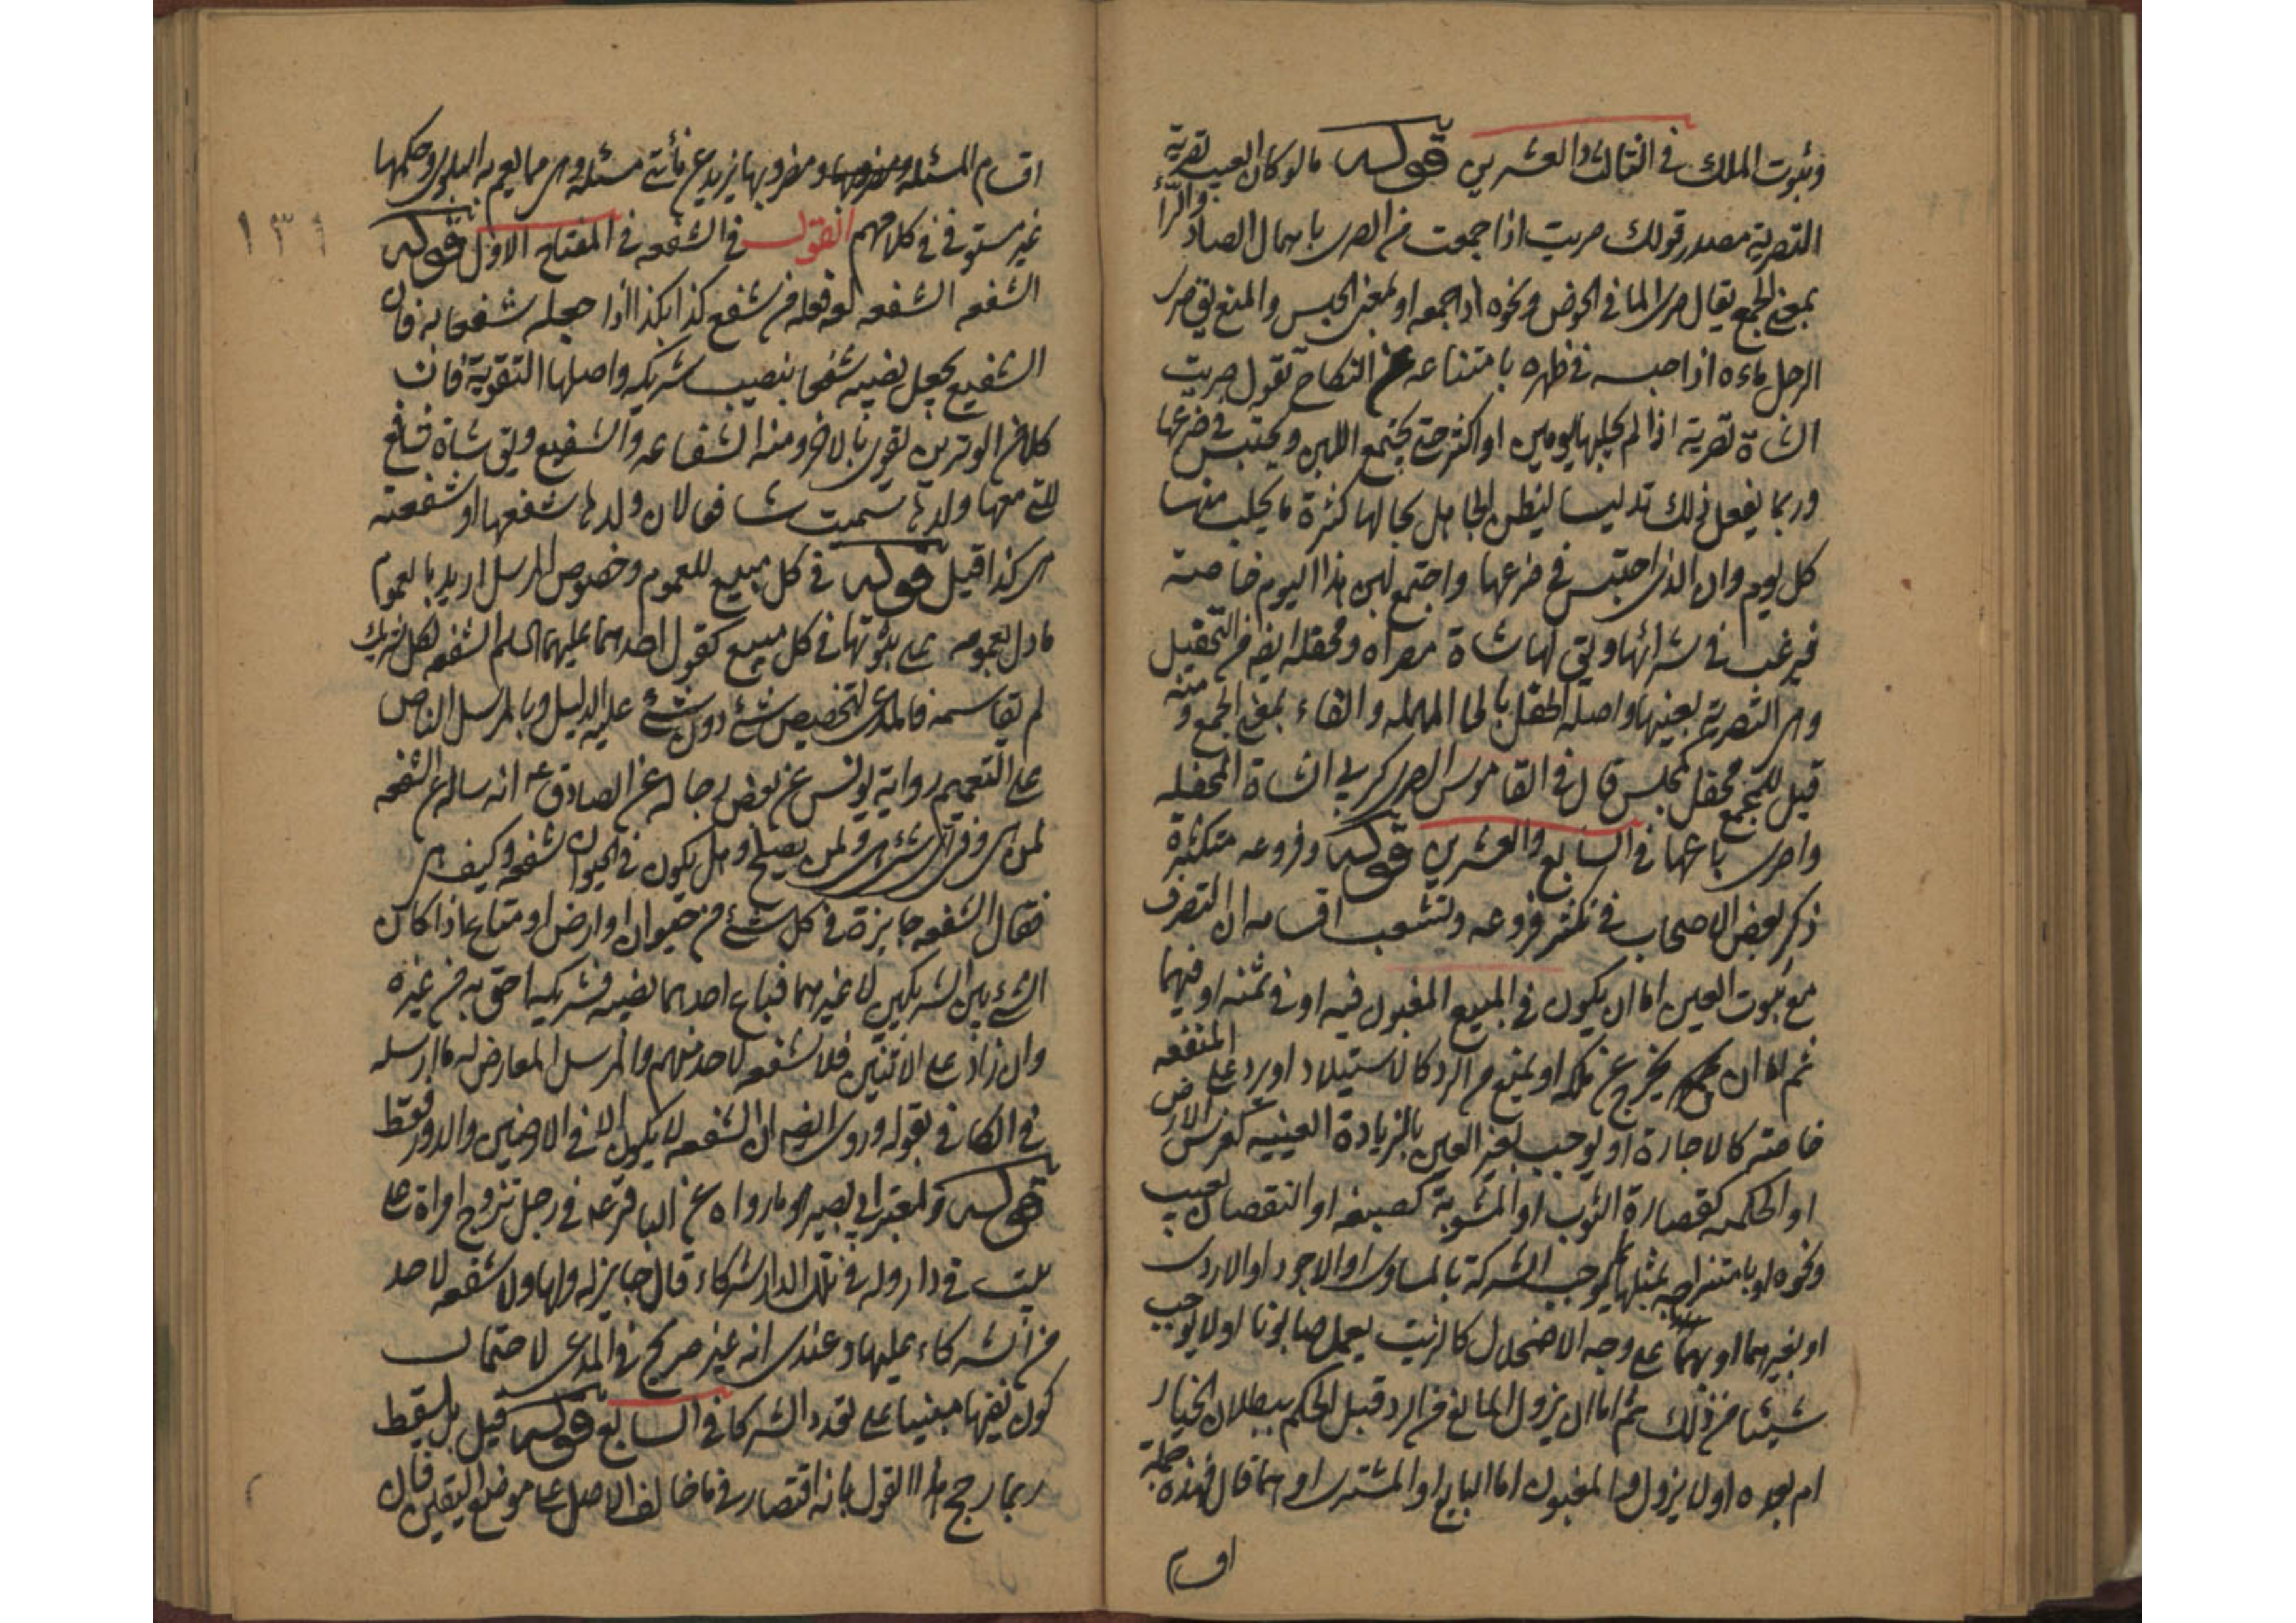 وثبوت الملك في الثالث والعشرين قوله ما لو كان العيب تصرية
التصرية مصدر قولك صريت اذا جمعت من الصرى باهمال الصاد والراء
بمعنى الجمع يقال صرى الما في الحوض ونحوه اذا جمعه او بمعنى الحبس والمنع يق صرى
الرجل ماءه اذا حبسه في ظهره بامتناعه عن النكاح تقول صريت
الشاة تصرية اذا لم تحلبها يومين او اكثر حتى يجتمع اللبن ويحتبس في ضرعها
وربما يفعل ذلك تدليسا ليظن الجاهل بحالها كثرة ما يحلب منها
كل يوم وان الذي احتبس في ضرعها واجتمع لبن هذا اليوم خاصته
فيرغب في شرائها ويق لها شاة مصراه ومحفله ايضه من التحفيل
وهى التصرية بعينها واصله الحفل بالحا المهمله والفاء بمعنى الجمع ومنه
قيل للمجمع محفل كمجلس قال في القاموس الصرى كربي الشاة المحفله
واصرى باعها في السابع والعشرين قوله وفروعه متكثرة
ذكر بعض الاصحاب في تكثر فروعه وتشعب اقسامه ان التصرف
مع ثبوت العين اما ان يكون في المبيع المغبون فيه او في ثمنه او فيهما
ثم اما ان يخرج عن ملكه او يمنع من الرد كالاستيلاد او يرد على المنفعه
خاصته كالاجارة او يوجب تغير العين بالزيادة العينيه كغرس الارض
او الحكميه كقصارة الثوب او المشوبة كصبغه او النقصان بعيب
ونحوه او بامتزاجه بمثلها بما يوجب الشركة بالمساوى او الاجود او الاردى
او بغيرهما او بهما على وجه الاضمحلال كالزيت يعمل صابونا او لا يوجب
شيئا من ذلك ثم اما ان يزول المانع من الرد قبل الحكم ببطلان الخيار
ام بعده او لا يزول والمغبون اما البايع او المشترى او هما قال فهذه جملة
اقسام
اقسام المسئله ومضروبها يزيد عن مأتى مسئله وهى مما يعم به البلوى وحكمها
غير مستوفى في كلامهم القول في الشفعه في المفتاح الاول قوله
الشفعه الشفعه لغه فعله من شفع كذا بكذا اذا جعله شفعا به فان
الشفيع يجعل نصيبه شفعا بنصيب شريكه واصلها التقوية فان
كلا من الوترين تقوى بالاخر ومنه الشفاعه والشفيع ويق شاة شافع
للتى معها ولدها سميت شافعا لان ولدها شفعها او شفعته
هى كذا قيل قوله في كل مبيع للعموم وخصوص المرسل اريد بالعموم
ما دل بعمومه على ثبوتها في كل مبيع كقول احدهما عليهما السلم الشفعه لكل شريك
لم تقاسمه فالمدعى لتخصيص شئ دون شئ عليه الدليل وبالمرسل الناص
على التعميم رواية يونس عن بعض رجاله عن الصادق ع انه ساله عن الشفعه
لمن هى وفي اى شئ هى ولمن يصلح وهل يكون في الحيوان شفعه وكيف هى
فقال الشفعه جايزة في كل شئ من حيوان او ارض او متاع اذا كان
الشئ بين الشريكين لا غيرهما فباع احدهما نصيبه فشريكه احق به من غيره
وان زاد على الاثنين فلا شفعه لاحد منهم والمرسل المعارض له ما ارسله
في الكافي بقوله وروى ايضه ان الشفعه لا يكون الا في الارضين والدور فقط
قوله ولمعتبر ابي بصير هو ما رواه عن الباقر ع في رجل تزوج امراة على
بيت في دار وله في تلك الدار شركاء قال جايز له ولها ولا شفعه لاحد
من الشركاء عليها وعندى انه غير صريح في المدعى لاحتمال
كون نفيها مبنيا على تعدد الشركا في السابع قوله قيل بل يسقط
ربما رجح هذا القول بانه اقتصار في ما خالف الاصل على موضع اليقين فان
١٣١